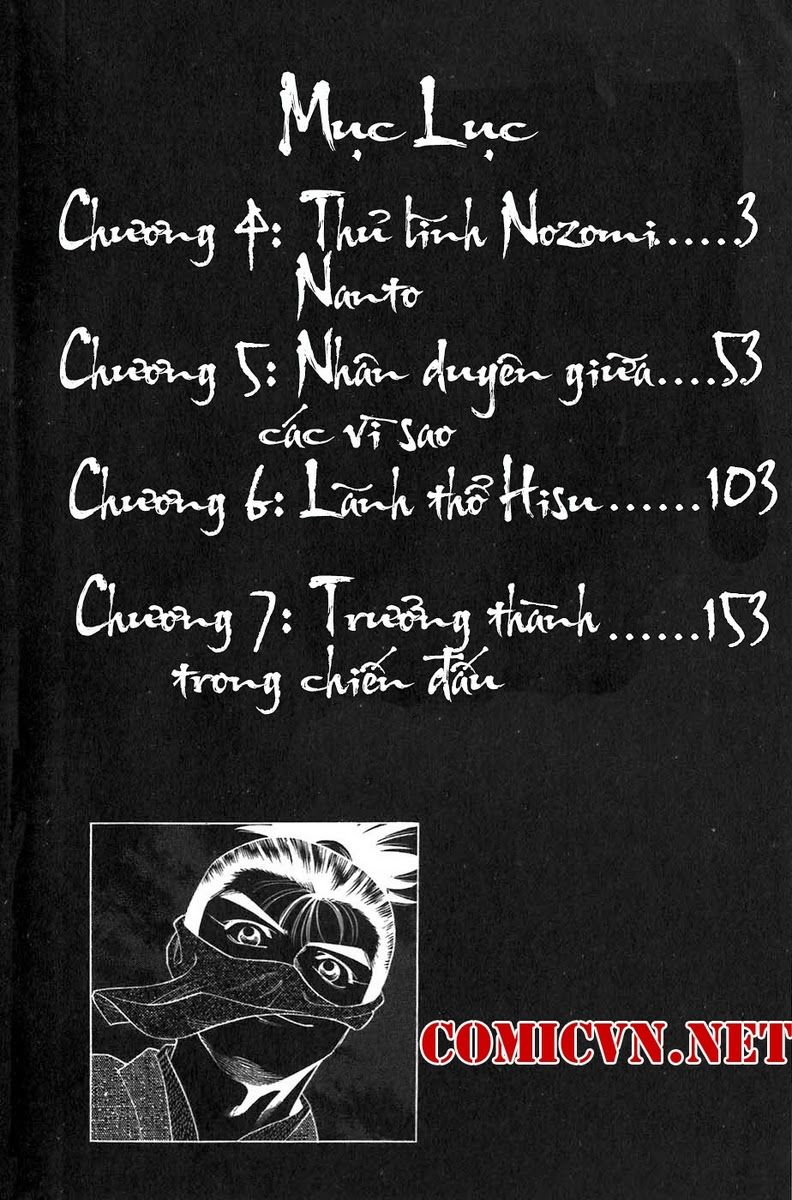 Mục Lục
Chương 4: Thử tình Nozomi......3
Nanto
Chương 5: Nhân duyên giữa....53
các vì sao
Chương 6: Lãnh thổ Hisu......103
Chương 7: Trưởng thành......153
trong chiến đấu
COMICVN.NET